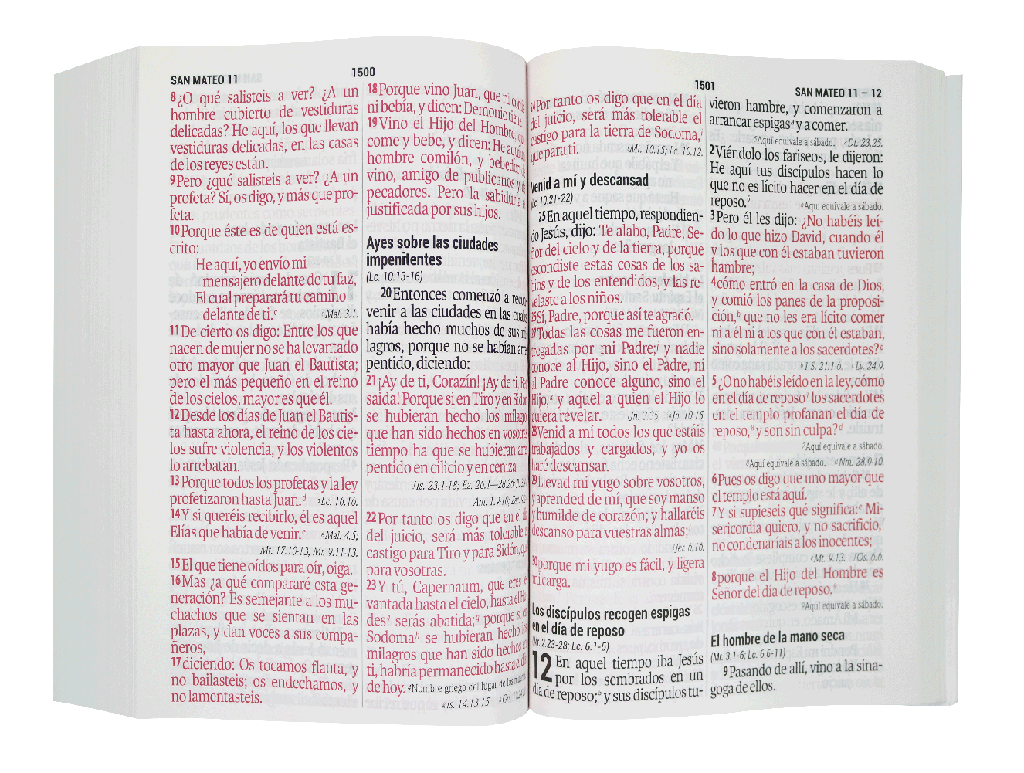 SAN MATEO 11
1500
8¿O qué salisteis a ver? ¿A un
hombre cubierto de vestiduras
delicadas? He aquí, los que llevan
vestiduras delicadas, en las casas
de los reyes están.
9Pero ¿qué salisteis a ver? ¿A un
profeta? Sí, os digo, y más que pro-
feta.
10Porque éste es de quien está es-
crito:
He aquí, yo envío mi
mensajero delante de tu faz,
El cual preparará tu camino
delante de ti.
Mal. 3.1.
11De cierto os digo: Entre los que
nacen de mujer no se ha levantado
otro mayor que Juan el Bautista;
pero el más pequeño en el reino
de los cielos, mayor es que él.
12Desde los días de Juan el Bautis-
ta hasta ahora, el reino de los cie-
los sufre violencia, y los violentos
lo arrebatan.
13Porque todos los profetas y la ley
profetizaron hasta Juan. Lc. 16.16.
14Y si queréis recibirlo, él es aquel
Elías que había de venir. Mal. 4.5;
Mt. 17.10-13; Mr. 9.11-13.
15El que tiene oídos para oír, oiga.
16Mas ¿a qué compararé esta ge-
neración? Es semejante a los mu-
chachos que se sientan en las
plazas, y dan voces a sus compa-
ñeros,
17diciendo: Os tocamos flauta, y
no bailasteis; os endechamos, y
no lamentasteis.
18Porque vino Juan, que ni
ni bebía, y dicen: Demonio
19Vino el Hijo del Hombre,
come y bebe, y dicen: He aquí
hombre comilón, y bebedor
vino, amigo de publicanos y
pecadores. Pero la sabiduría
justificada por sus hijos.
Ayes sobre las ciudades
impenitentes
(Lc. 10.13-16)
20Entonces comenzó a
venir a las ciudades en las
había hecho muchos de sus
lagros, porque no se habían
pentido, diciendo:
21¡Ay de ti, Corazín! ¡Ay de ti,
saida! Porque si en Tiro y en
se hubieran hecho los
que han sido hechos en
tiempo ha que se hubieran
pentido en cilicio y en ceniza
Is. 23.1-18; Ez. 26.1—28.26;
22Por tanto os digo que en el
del juicio, será más tolerable
castigo para Tiro y para Sidón,
para vosotras.
23Y tú, Capernaum, que eres
vantada hasta el cielo, hasta el
des serás abatida; porque si
Sodoma se hubieran hecho
milagros que han sido hechos
ti, habría permanecido hasta
de hoy. Nombre griego del lugar de los
Is. 14.13-15
1501
SAN MATEO 11 – 12
Por tanto os digo que en el día
del juicio, será más tolerable el
castigo para la tierra de Sodoma,
que para ti. Mt. 10.15; Lc. 10.12.
Venid a mí y descansad
(Lc. 10.21-22)
25En aquel tiempo, respondien-
do Jesús, dijo: Te alabo, Padre, Se-
ñor del cielo y de la tierra, porque
escondiste estas cosas de los sa-
bios y de los entendidos, y las re-
velaste a los niños.
Sí, Padre, porque así te agradó.
Todas las cosas me fueron en-
tregadas por mi Padre; y nadie
conoce al Hijo, sino el Padre, ni
al Padre conoce alguno, sino el
Hijo, y aquel a quien el Hijo lo
quiera revelar. Jn. 3.35. Jn. 10.15.
28Venid a mí todos los que estáis
trabajados y cargados, y yo os
haré descansar.
29Llevad mi yugo sobre vosotros,
y aprended de mí, que soy manso
y humilde de corazón; y hallaréis
descanso para vuestras almas;
Jer. 6.16.
30porque mi yugo es fácil, y ligera
mi carga.
Los discípulos recogen espigas
en el día de reposo
(Mr. 2.23-28; Lc. 6.1-5)
12 En aquel tiempo iba Jesús
por los sembrados en un
día de reposo; y sus discípulos tu-
vieron hambre, y comenzaron a
arrancar espigas y a comer.
Aquí equivale a sábado. Dt. 23.25.
2Viéndolo los fariseos, le dijeron:
He aquí tus discípulos hacen lo
que no es lícito hacer en el día de
reposo. Aquí equivale a sábado.
3Pero él les dijo: ¿No habéis leí-
do lo que hizo David, cuando él
y los que con él estaban tuvieron
hambre;
4cómo entró en la casa de Dios,
y comió los panes de la proposi-
ción, que no les era lícito comer
ni a él ni a los que con él estaban,
sino solamente a los sacerdotes?
1 S. 21.1-6. Lv. 24.9.
5¿O no habéis leído en la ley, cómo
en el día de reposo los sacerdotes
en el templo profanan el día de
reposo, y son sin culpa?
Aquí equivale a sábado.
Aquí equivale a sábado. Nm. 28.9-10.
6Pues os digo que uno mayor que
el templo está aquí.
7Y si supieseis qué significa: Mi-
sericordia quiero, y no sacrificio,
no condenaríais a los inocentes;
Mt. 9.13. Os. 6.6.
8porque el Hijo del Hombre es
Señor del día de reposo.
Aquí equivale a sábado.
El hombre de la mano seca
(Mr. 3.1-6; Lc. 6.6-11)
9Pasando de allí, vino a la sina-
goga de ellos.